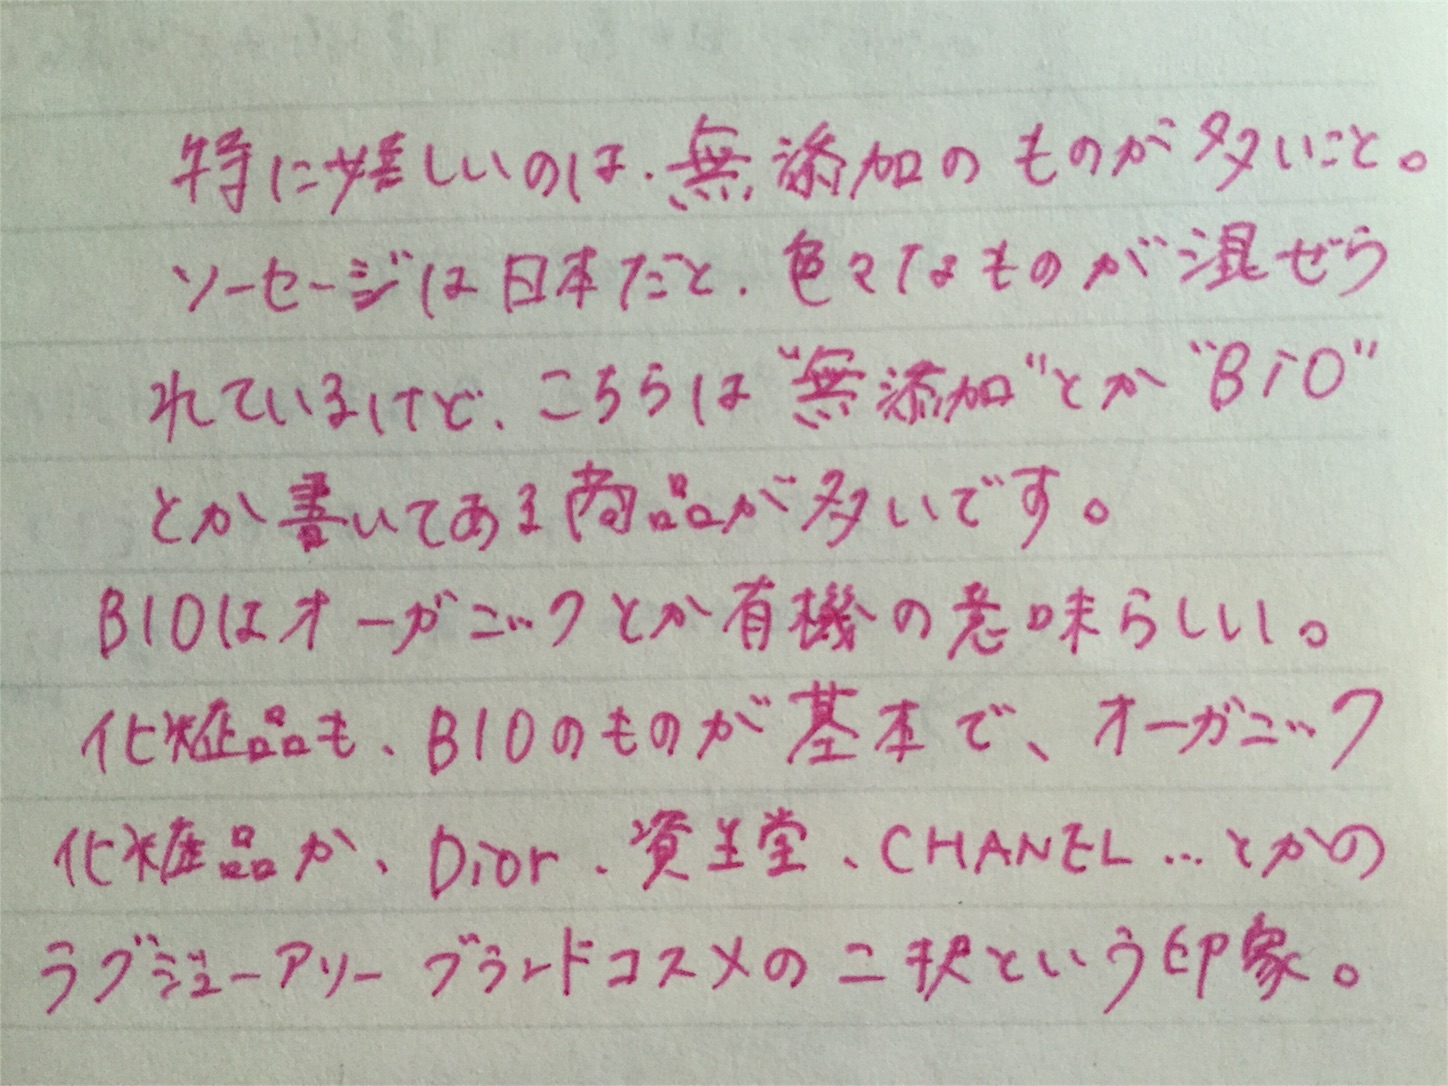 特に嬉しいのは、無添加のものが多いこと。
ソーセージは日本だと、色々なものが混ぜら
れているけど、こちらは“無添加”とか“BiO”
とか書いてある商品が多いです。
BIOはオーガニックとか有機の意味らしい。
化粧品も、BIOのものが基本で、オーガニック
化粧品か、Dior、資生堂、CHANEL…とかの
ラグジューアリーブランドコスメの二択という印象。